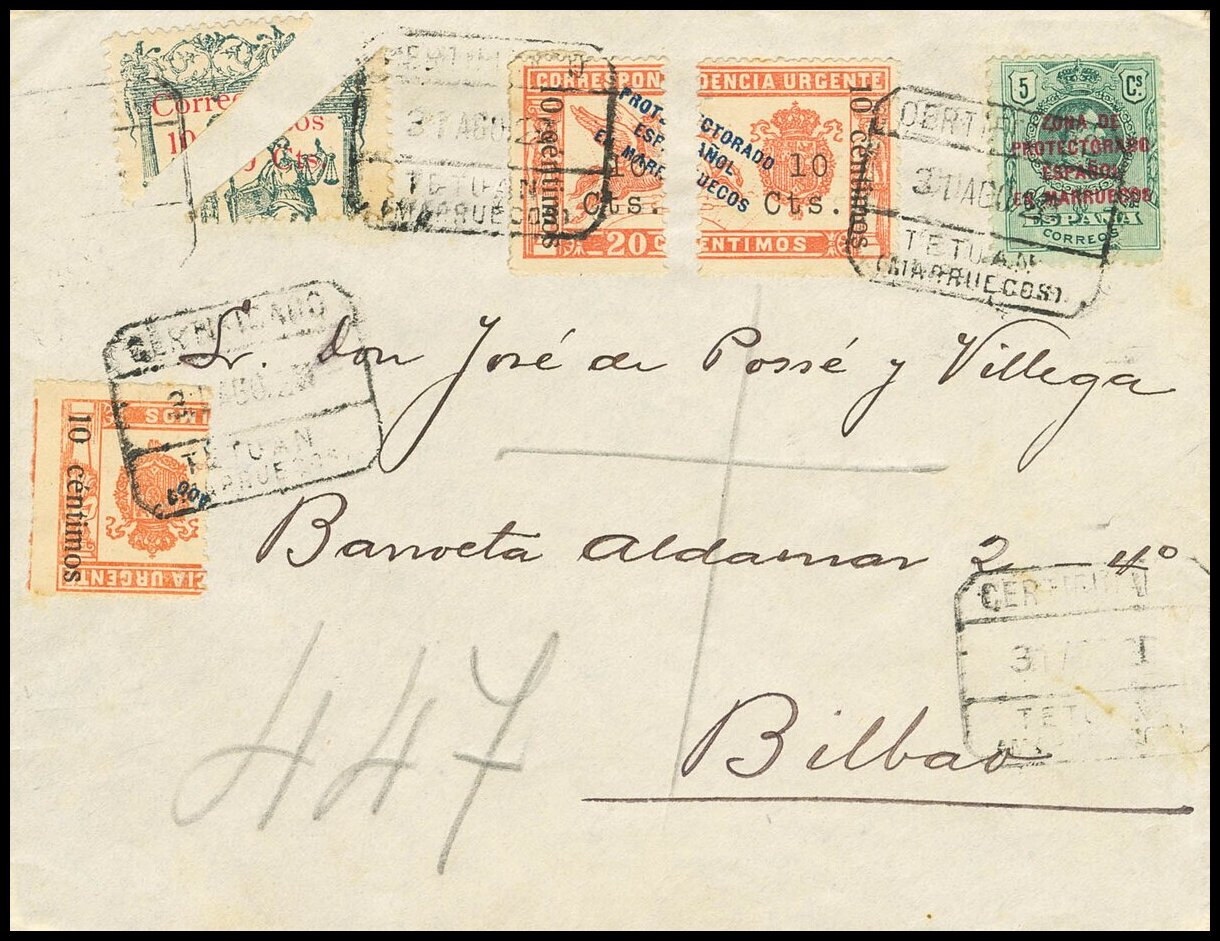 Correos
10 Cts
CERTIFICADO
31 AGO
TETUAN
(MARRUECOS)
CORRESPONDENCIA URGENTE
10 céntimos
PROTECTORADO
ESPAÑOL
EN MARRUECOS
10
Cts.
20 CENTIMOS
10
Cts.
10 céntimos
CERT
31 AGO
TETUAN
(MARRUECOS)
5 Cs.
ZONA DE
PROTECTORADO
ESPAÑOL
EN MARRUECOS
ESPAÑA
CORREOS
CERTIFICADO
31 AGO
TETUAN
MARRUECOS
10 céntimos
TIMOS
CIA URGENTE
Sr. Don José de Possé y Villega
Barroeta Aldamar 2 – 4º
CERTIFI
31
TETUAN
Bilbao
447